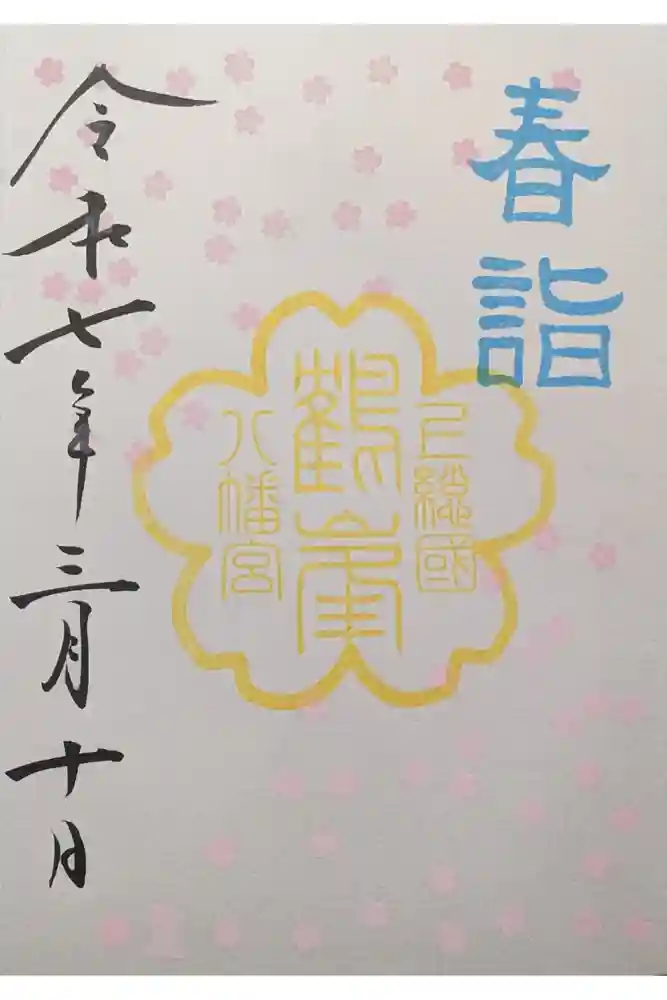 春詣
上總國
鶴峯
八幡宮
令和七年三月十日